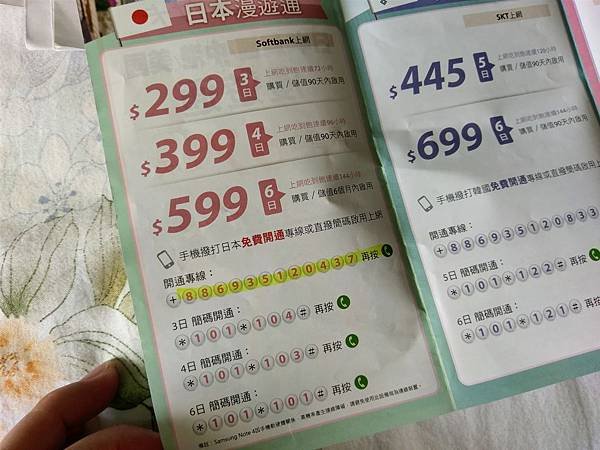 日本漫遊通
Softbank上網
$299 3日 上網吃到飽連續72小時
購買 / 儲值90天內啟用
$399 4日 上網吃到飽連續96小時
購買 / 儲值90天內啟用
$599 6日 上網吃到飽連續144小時
購買 / 儲值6個月內啟用
手機撥打日本免費開通專線或直撥簡碼啟用上網
開通專線：
+886935120437再按
3日 簡碼開通：
*101*104# 再按
4日 簡碼開通：
*101*103# 再按
6日 簡碼開通：
*101*101# 再按
SKT上網
$445 5日 上網吃到飽連續120小時
購買 / 儲值90天內啟用
$699 6日 上網吃到飽連續144小時
購買 / 儲值90天內啟用
手機撥打韓國免費開通專線或直撥簡碼啟
開通專線：
+886935120833
5日 簡碼開通：
*101*122#再按
6日 簡碼開通：
*101*121#再按